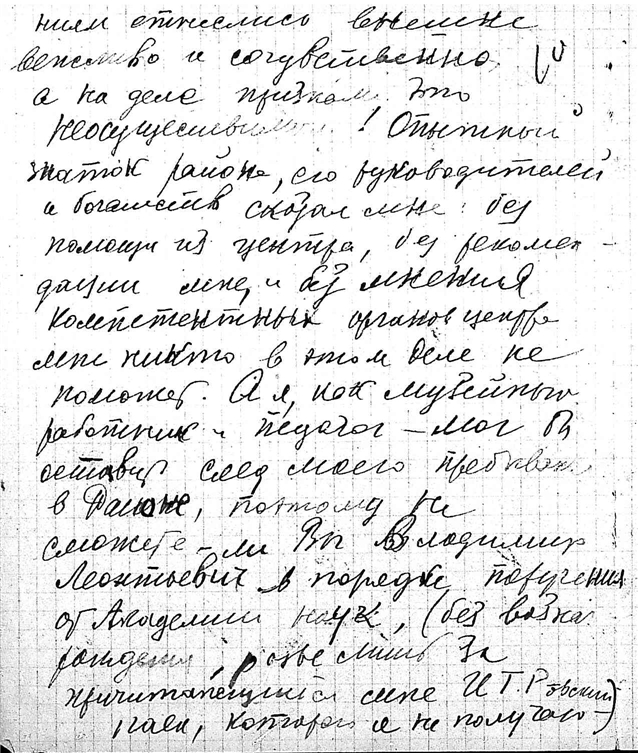 ниям отнеслись внешне
вежливо и сочувственно,
а на деле признали это
неосуществимым! Опытный
знаток района, его руководителей
и богатств сказал мне: без
помощи из центра, без рекомен-
дации мне, и без мнения
компетентных органов центра
мне никто в этом деле не
поможет. А я, как музейный
работник и педагог – мог бы
оставить след моего пребывания
в районе, поэтому не
сможете – ли Вы Владимир
Леонтьевич в порядке поручения
от Академии наук, (без вознаг
раждения, разве лишь за
причитающийся мне ИТРовский
паек, которого я не получаю –)